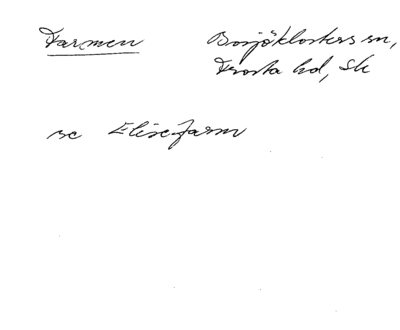 Farmen
Bosjöklosters sn,
Frosta hd, Sk
se Elisefarm